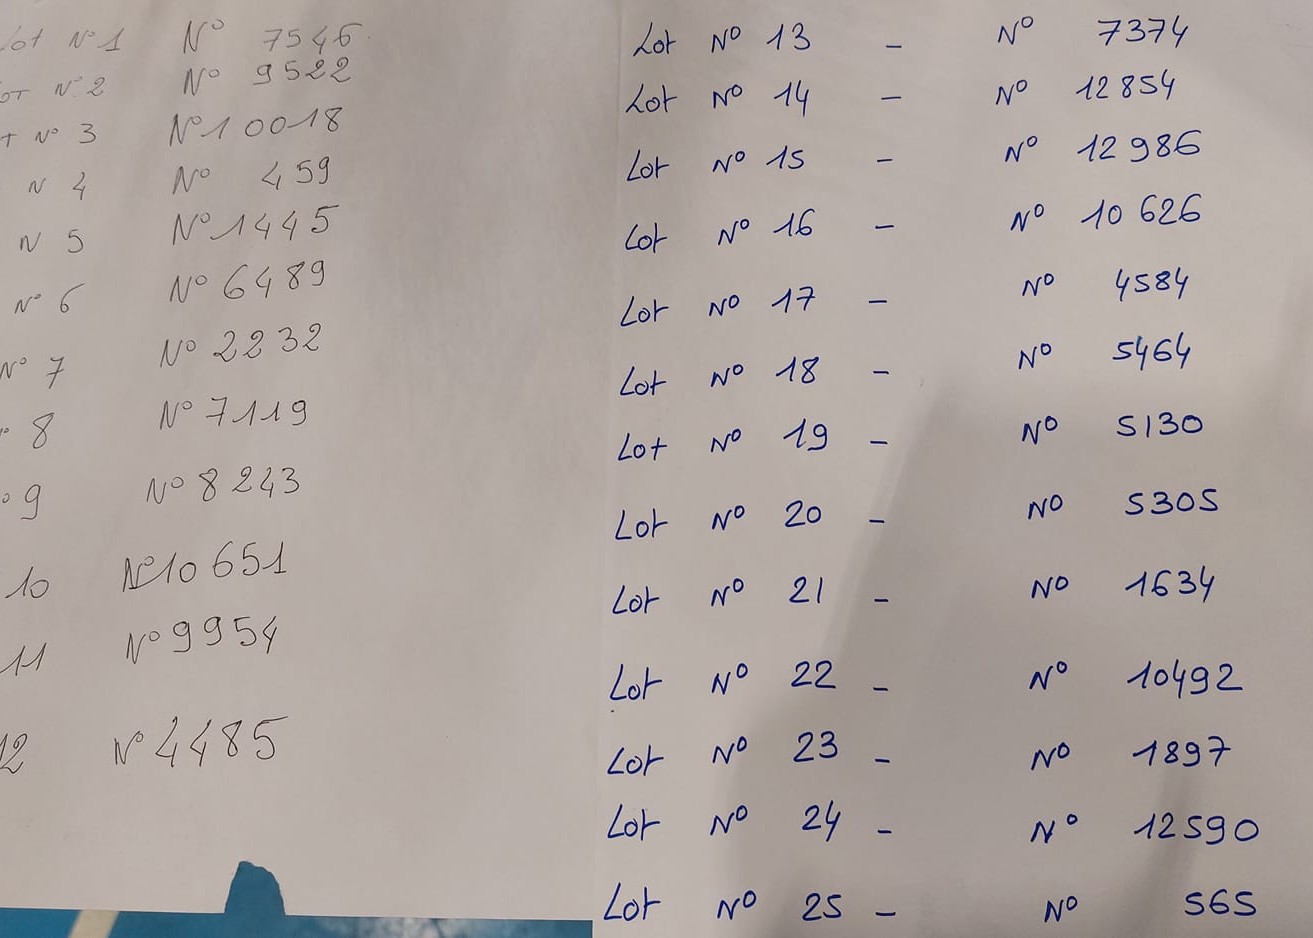 Lot N° 1 N° 7546
OT N° 2 N° 9522
T N° 3 N° 10018
N 4 N° 459
N 5 N° 1445
N° 6 N° 6489
N° 7 N° 2232
° 8 N° 7119
° 9 N° 8243
10 N° 10651
11 N° 9954
12 N° 4485
Lot N° 13 - N° 7374
Lot N° 14 - N° 12854
Lot N° 15 - N° 12986
Lot N° 16 - N° 10626
Lot N° 17 - N° 4584
Lot N° 18 - N° 5464
Lot N° 19 - N° 5130
Lot N° 20 - N° 5305
Lot N° 21 - N° 1634
Lot N° 22 - N° 10492
Lot N° 23 - N° 1897
Lot N° 24 - N° 12590
Lot N° 25 - N° 565